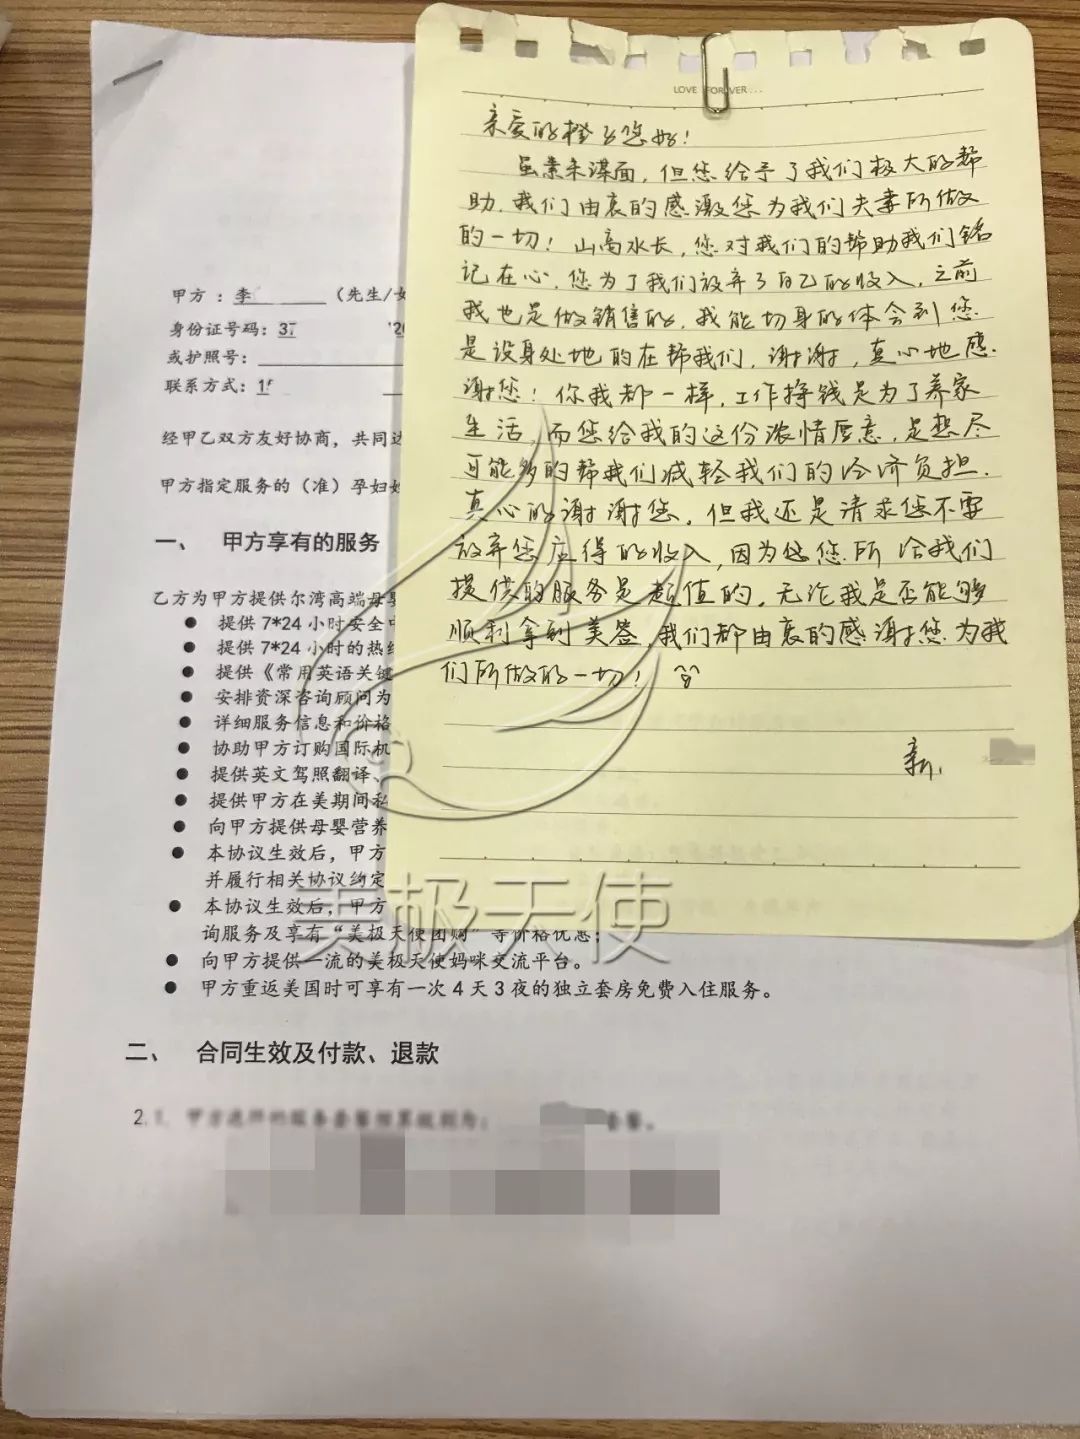 LOVE FOREVER...
亲爱的橙子您好！
虽素未谋面，但您给予了我们极大的帮
助，我们由衷的感激您为我们夫妻所做
的一切！山高水长，您对我们的帮助我们铭
记在心，您为了我们放弃了自己的收入，之前
我也是做销售的，我能切身的体会到您
是设身处地的在帮我们，谢谢，真心地感
谢您！你我都一样，工作挣钱是为了养家
生活，而您给我的这份浓情厚意，是想尽
可能多的帮我们减轻我们的经济负担，
真心的谢谢您，但我还是请求您不要
放弃您应得的收入，因为您所给我们
提供的服务是超值的，无论我是否能够
顺利拿到美签，我们都由衷的感谢您为我
们所做的一切！
甲方：李 （先生/女
身份证号码：37
或护照号：
联系方式：
经甲乙双方友好协商，共同达
甲方指定服务的（准）孕妇
一、 甲方享有的服务
乙方为甲方提供尔湾高端母婴
● 提供 7*24 小时安全
● 提供 7*24 小时的热线
● 提供《常用英语关键
● 安排资深咨询顾问为
● 详细服务信息和价格
● 协助甲方订购国际机
● 提供英文驾照翻译、
● 提供甲方在美期间私
● 向甲方提供母婴营养
● 本协议生效后，甲方
并履行相关协议约定
● 本协议生效后，甲方
询服务及享有“美极天使团购”等价格优惠；
● 向甲方提供一流的美极天使妈咪交流平台。
● 甲方重返美国时可享有一次 4 天 3 夜的独立套房免费入住服务。
二、 合同生效及付款、退款
2.1.
美极天使